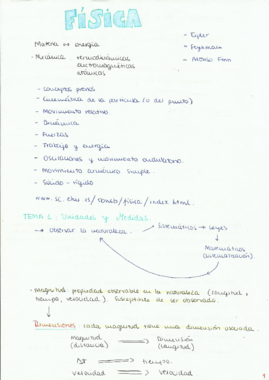 FÍSICA
Materia ↔ energía
- Tipler
- Feynmann
- Alonso Finn
- Mecánica termodinámicas
electromagnéticas
atómicas
- conceptos previos
- Cinemática de la partícula (o del punto)
- Movimiento relativo.
- Dinámica
- Fuerzas
- Trabajo y energía
- Oscilaciones y movimiento ondulatorio.
- Movimiento armónico simple.
- Sólido rígido
TEMA 1: Unidades y Medidas.
→ observar la naturaleza.
Sistemáticas → leyes
Matemáticas
- Magnitud: propiedad observable en la naturaleza (longitud,
tiempo, velocidad). Susceptible de ser observada.
Dimensiones: cada magnitud tiene una dimensión asociada.
Magnitud ⇒ Dimensión
(distancia) (longitud)
Δt ⇒ tiempo.
velocidad ⇒ velocidad
1